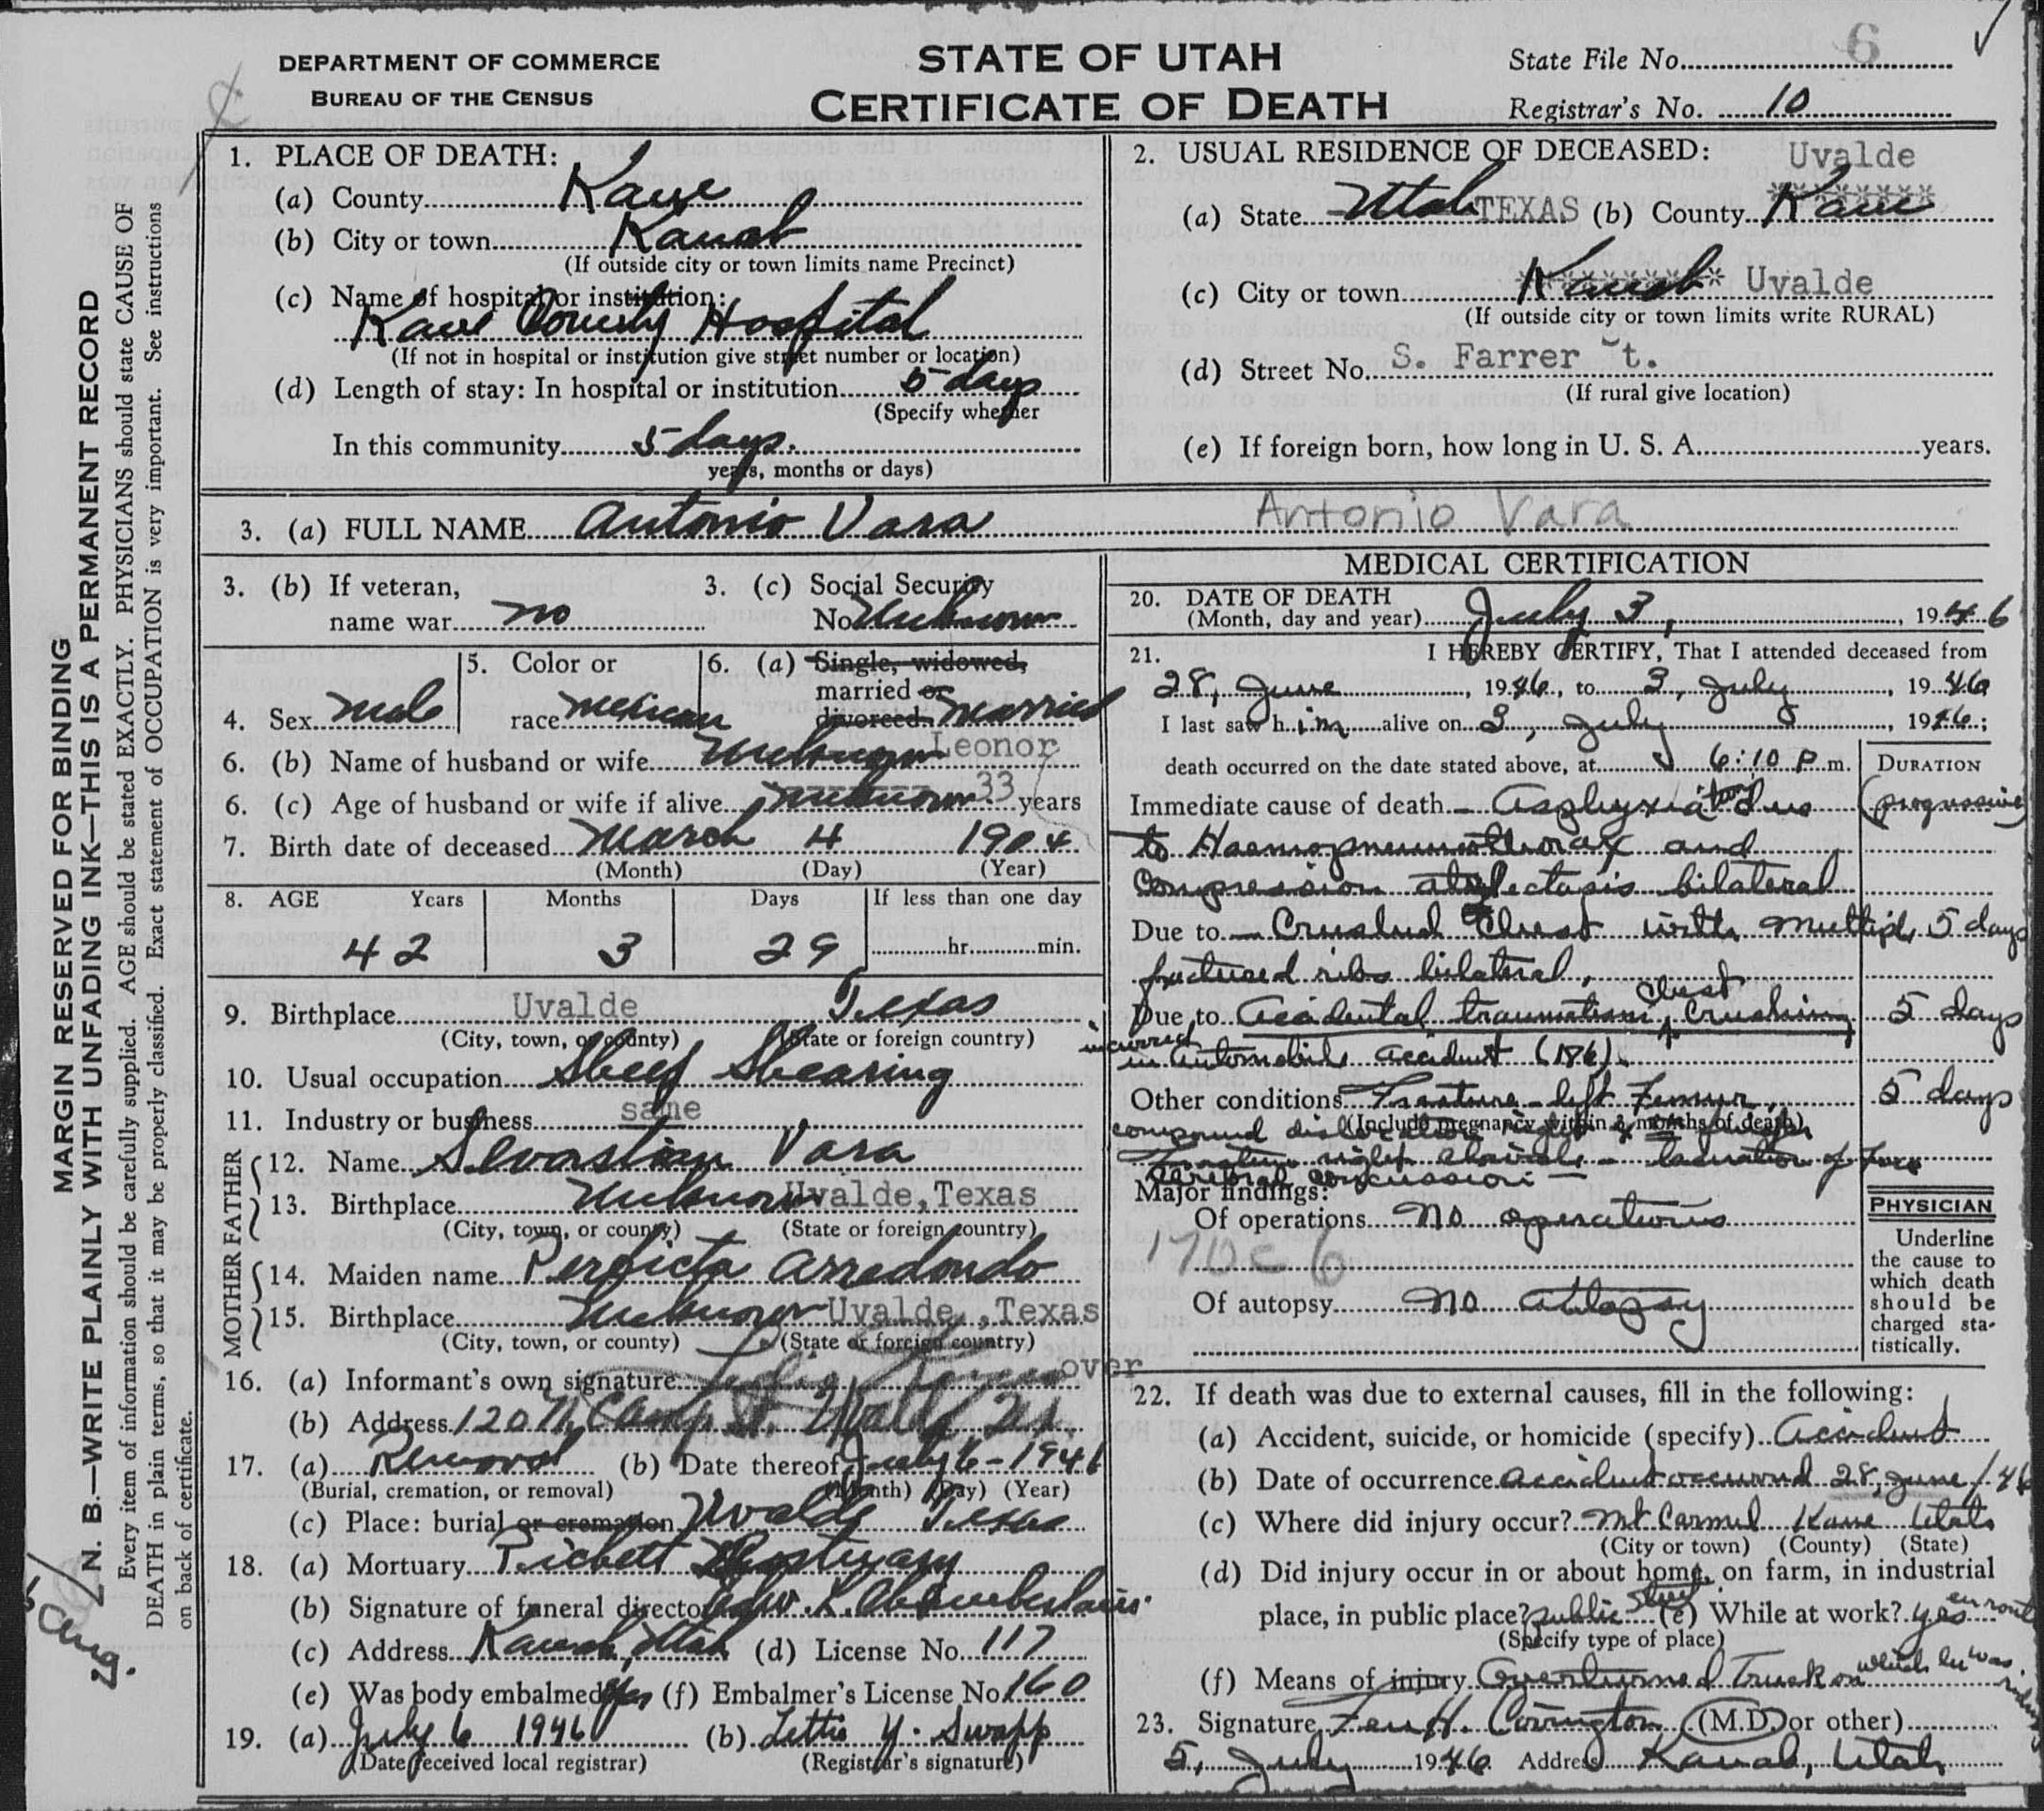 DEPARTMENT OF COMMERCE
BUREAU OF THE CENSUS
STATE OF UTAH
CERTIFICATE OF DEATH
State File No. 6
Registrar's No. 10
MARGIN RESERVED FOR BINDING
N. B.—WRITE PLAINLY WITH UNFADING INK—THIS IS A PERMANENT RECORD
Every item of information should be carefully supplied. AGE should be stated EXACTLY. PHYSICIANS should state CAUSE OF
DEATH in plain terms, so that it may be properly classified. Exact statement of OCCUPATION is very important. See instructions
on back of certificate.
1. PLACE OF DEATH:
(a) County Kane
(b) City or town Kanab
(If outside city or town limits name Precinct)
(c) Name of hospital or institution:
Kane County Hospital
(If not in hospital or institution give street number or location)
(d) Length of stay: In hospital or institution 5 days
(Specify whether
In this community 5 days.
years, months or days)
2. USUAL RESIDENCE OF DECEASED:
Uvalde
(a) State Utah TEXAS (b) County Kane
(c) City or town Kanab Uvalde
(If outside city or town limits write RURAL)
(d) Street No. S. Farrer St.
(If rural give location)
(e) If foreign born, how long in U. S. A. years.
3. (a) FULL NAME Antonio Vara Antonio Vara
3. (b) If veteran,
name war no
3. (c) Social Security
No Unknown
4. Sex Male
5. Color or
race Mexican
6. (a) Single, widowed,
married or
divorced. Married
6. (b) Name of husband or wife Unknown Leonor
6. (c) Age of husband or wife if alive unknown 33 years
7. Birth date of deceased March 4 1904
(Month) (Day) (Year)
8. AGE Years Months Days If less than one day
42 3 29 hr. min.
9. Birthplace Uvalde Texas
(City, town, or county) (State or foreign country)
10. Usual occupation Sheep Shearing
11. Industry or business same
FATHER
12. Name Sevastian Vara
13. Birthplace Unknown Uvalde, Texas
(City, town, or county) (State or foreign country)
MOTHER
14. Maiden name Perfecta Arredondo
15. Birthplace Unknown Uvalde, Texas
(City, town, or county) (State or foreign country)
16. (a) Informant's own signature over
(b) Address 120 N. Camp St. Uvalde, Tex
17. (a) Removal (b) Date thereof July 6-1946
(Burial, cremation, or removal) (Month) (Day) (Year)
(c) Place: burial or cremation Uvalde Texas
18. (a) Mortuary Mortuary
(b) Signature of funeral director K. Chamberlain
(c) Address Kanab, Utah (d) License No. 117
(e) Was body embalmed yes (f) Embalmer's License No. 160
19. (a) July 6 1946 (b) Lettie Y. Swapp
(Date received local registrar) (Registrar's signature)
MEDICAL CERTIFICATION
20. DATE OF DEATH
(Month, day and year) July 3, 1946
21. I HEREBY CERTIFY, That I attended deceased from
28, June, 1946, to 3, July, 1946
I last saw him alive on 3, July, 1946;
death occurred on the date stated above, at 6:10 P m.
DURATION
Immediate cause of death — Asphyxiation due (progressive)
to Haemopneumothorax and
compression atelectasis bilateral
Due to — Crushed Chest with multiple 5 days
fractured ribs bilateral,
Due to Accidental traumatism, chest crushing 5 days
incurred in Automobile accident (186).
Other conditions Fracture — left Femur, 5 days
(Include pregnancy within 3 months of death)
compound dislocation right
Fracture right clavicle — laceration of Face
cerebral concussion —
Major findings:
Of operations No operations
170c 6
Of autopsy no autopsy
PHYSICIAN
Underline
the cause to
which death
should be
charged sta-
tistically.
22. If death was due to external causes, fill in the following:
(a) Accident, suicide, or homicide (specify) Accident
(b) Date of occurrence accident occurred 28, June/46
(c) Where did injury occur? Mt Carmel Kane Utah
(City or town) (County) (State)
(d) Did injury occur in or about home, on farm, in industrial
place, in public place? public street (e) While at work? yes enroute
(Specify type of place)
(f) Means of injury Overturned Truck on which he was riding
23. Signature H. Covington (M.D. or other)
5, July 1946 Address Kanab, Utah